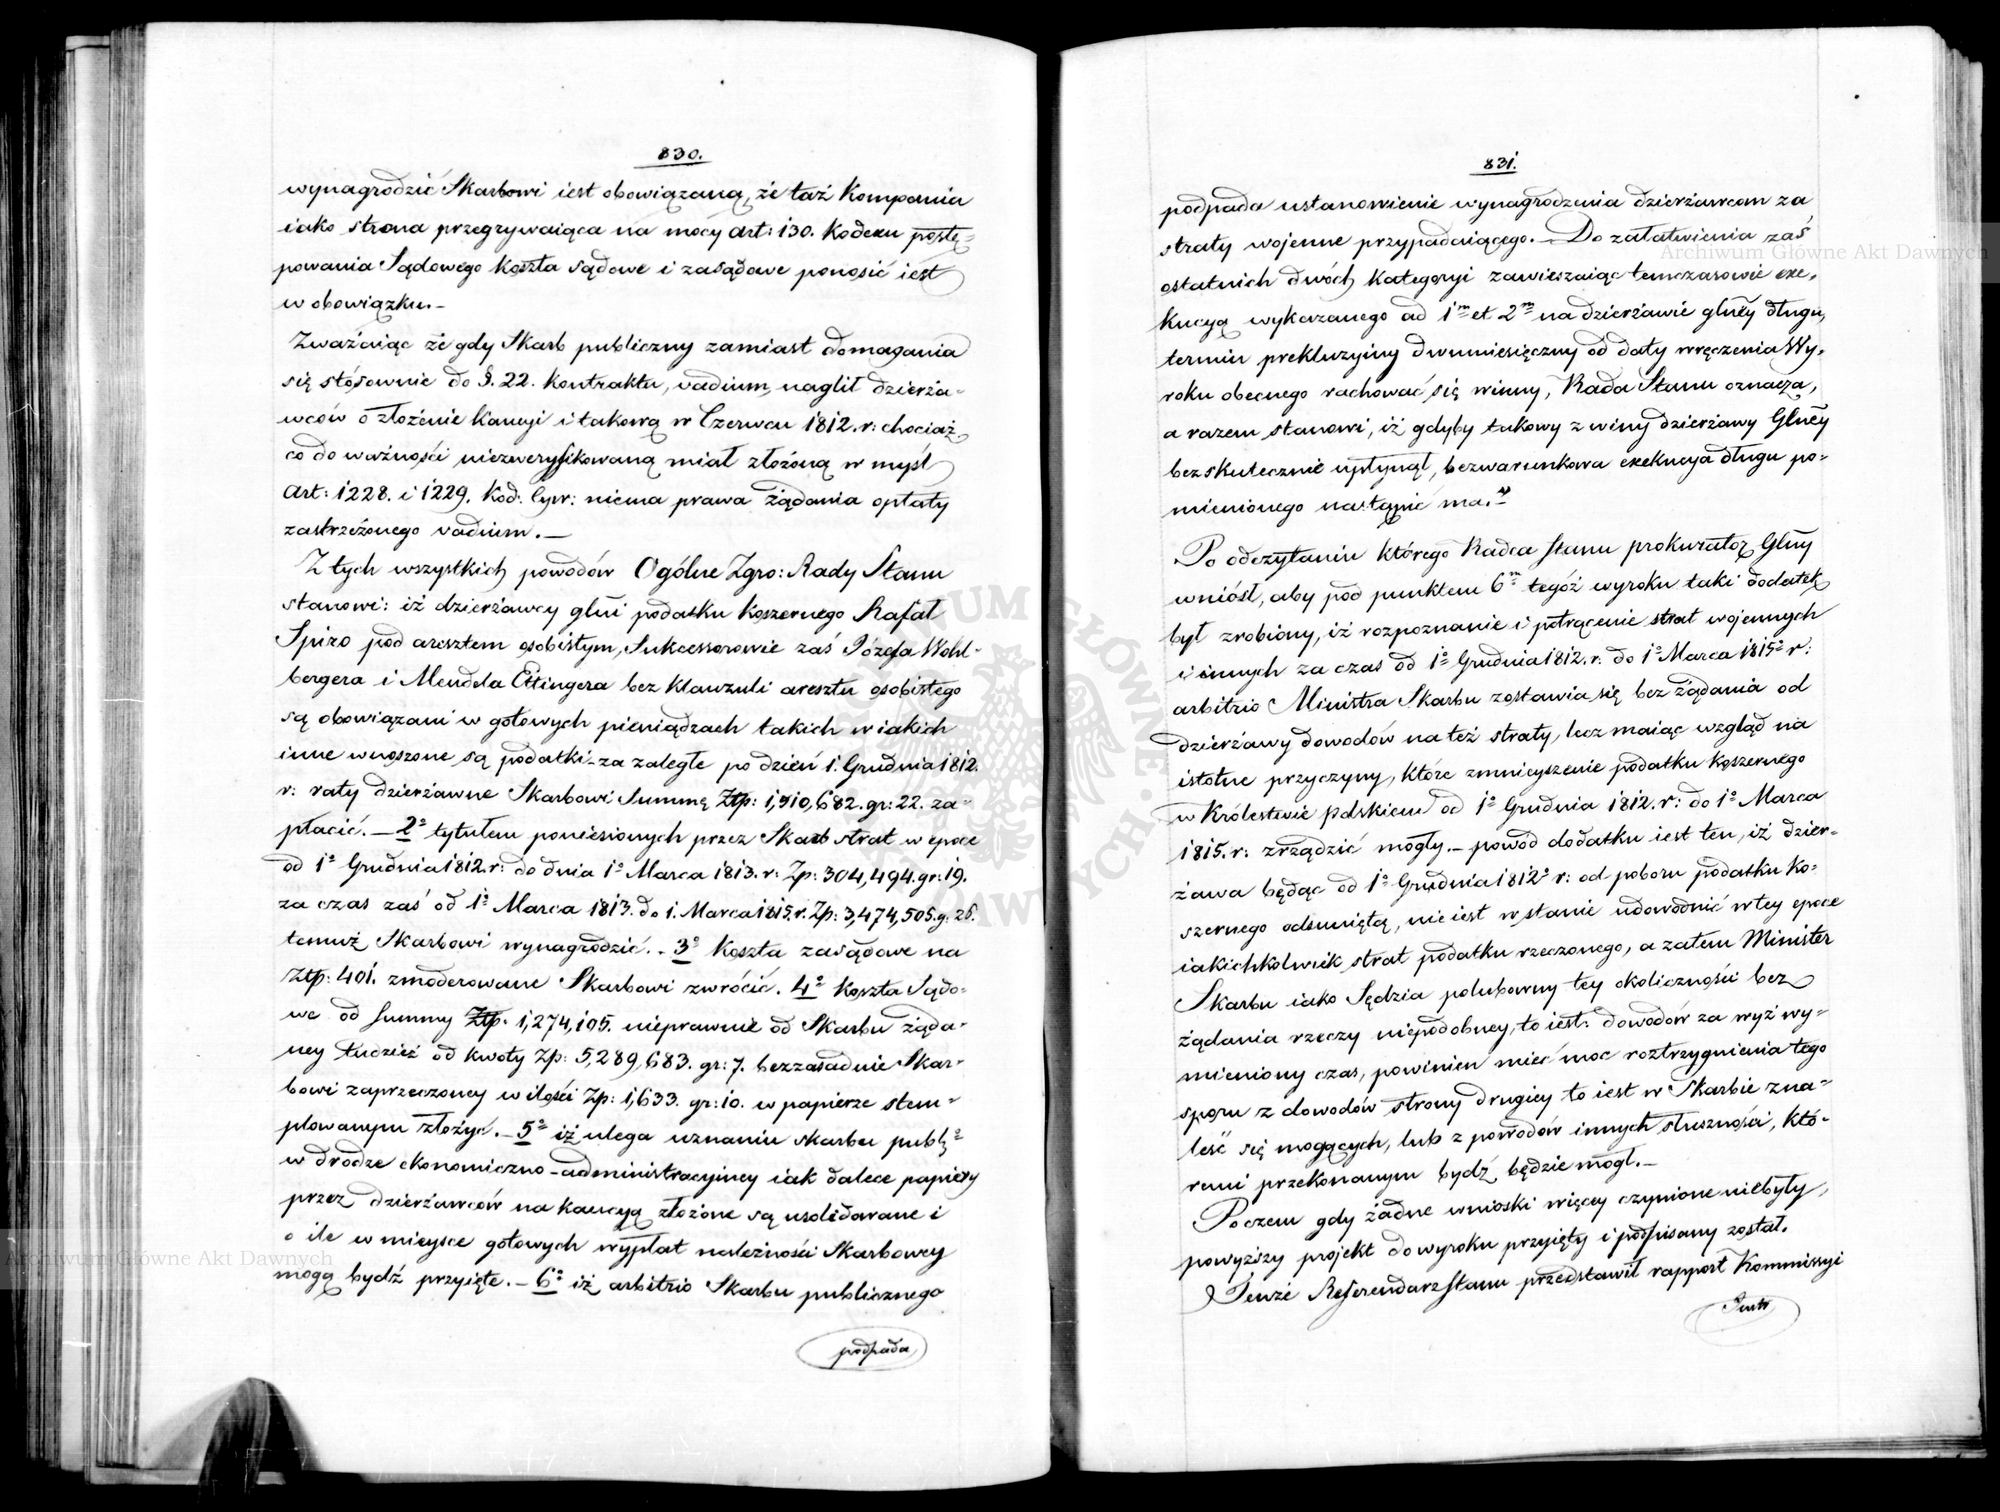 830.
wynagrodzić Skarbowi iest obowiązaną, że taż Kompania
iako strona przegrywaiąca na mocy art: 130. Kodexu postę-
powania Sądowego koszta sądowe i zasądowe ponosić iest
w obowiązku.-
Zważaiąc że gdy Skarb publiczny zamiast domagania
się stósownie do §. 22. Kontraktu, vadium, naglił dzierża-
wców o złożenie kaucyi i takową w Czerwcu 1812. r: chociaż
co do ważności niezweryfikowaną miał złożoną w myśl
art: 1228. i 1229. Kod: Cyw: niema prawa żądania opłaty
zastrzeżonego vadium.-
Z tych wszystkich powodów Ogólne Zgro: Rady Stanu
stanowi: iż dzierżawcy glni podatku koszernego Rafał
Spiro pod aresztem osobistym, Sukcessorowie zaś Józefa Wohl-
bergera i Mendla Ettingera bez klauzuli aresztu osobistego
są obowiązani w gotowych pieniądzach takich w iakich
inne wnoszone są podatki - za zaległe po dzień 1. Grudnia 1812.
r: raty dzierżawne Skarbowi Summę Ztp: 1,510,682. gr: 22. za-
płacić. - 2° tytułem poniesionych przez Skarb strat w epoce
od 1° Grudnia 1812. r: do dnia 1° Marca 1813. r: Zp: 304,494. gr: 19.
za czas zaś od 1° Marca 1813. do 1. Marca 1815. r. Zp: 3,474,505. g: 26.
temuż Skarbowi wynagrodzić. - 3° koszta zasądowe na
Ztp: 401. zmoderowane Skarbowi zwrócić. 4° Koszta Sądo-
we od summy Ztp. 1,274,105. nieprawnie od Skarbu żąda-
ney tudzież od kwoty Zp: 5,289,683. gr: 7. bezzasadnie Skar-
bowi zaprzeczoney w ilości Zp: 1,633. gr: 10. w papierze stem-
plowanym złożyć. - 5° iż ulega uznaniu skarbu publ:
w drodze ekonomiczno-administracyiney iak dalece papiery
przez dzierżawców na kaucyą złożone są usolidowane i
o ile w mieysce gotowych wypłat należności Skarbowey
mogą bydź przyięte. - 6° iż arbitrio Skarbu publicznego
podpada
831.
podpada ustanowienie wynagrodzenia dzierżawcom za
straty wojenne przypadaiącego. - Do załatwienia zaś
ostatnich dwóch kategoryi zawieszaiąc temczasowie exe-
kucyą wykazanego ad 1m et 2m na dzierżawie glney długu,
termin prekluzyiny dwumiesięczny od daty wręczenia Wy-
roku obecnego rachować się winny, Rada Stanu oznacza,
a razem stanowi, iż gdyby takowy z winy dzierżawy Glney
bezskutecznie upłynął, bezwarunkowa exekucya długu po-
mienionego nastąpić ma."
Po odczytaniu którego Radca Stanu prokurator Glny
wniósł, aby pod punktem 6m tegóż wyroku taki dodatek
był zrobiony, iż rozpoznanie i potrącenie strat wojennych
i innych za czas od 1° Grudnia 1812. r: do 1° Marca 1815° r:
arbitrio Ministra Skarbu zostawia się bez żądania od
dzierżawy dowodów na też straty, lecz maiąc wzgląd na
istotne przyczyny, które zmnieyszenie podatku koszernego
w Królestwie polskiem od 1° Grudnia 1812. r: do 1° Marca
1815. r: zrządzić mogły. - powód dodatku iest ten, iż dzier-
żawa będąc od 1° Grudnia 1812° r: od poboru podatku ko-
szernego odsuniętą, nie iest w stanie udowodnić w tey epoce
iakichkolwiek strat podatku rzeczonego, a zatem Minister
Skarbu iako Sędzia polubowny tey okoliczności bez
żądania rzeczy niepodobney, to iest: dowodów za wyż wy-
mieniony czas, powinien mieć moc roztrzygnienia tego
sporu z dowodów strony drugiey to iest w Skarbie zna-
leść się mogących, lub z powodów innych słuszności, któ-
remi przekonanym bydź będzie mógł. -
Poczem gdy żadne wnioski więcey czynione niebyły,
powyższy projekt do wyroku przyięty i podpisany został.
Tenże Referendarz Stanu przedstawił rapport Kommissyi
Archiwum Główne Akt Dawnych
Archiwum Główne Akt Dawnych
ARCHIWUM GŁÓWNE AKT DAWNYCH